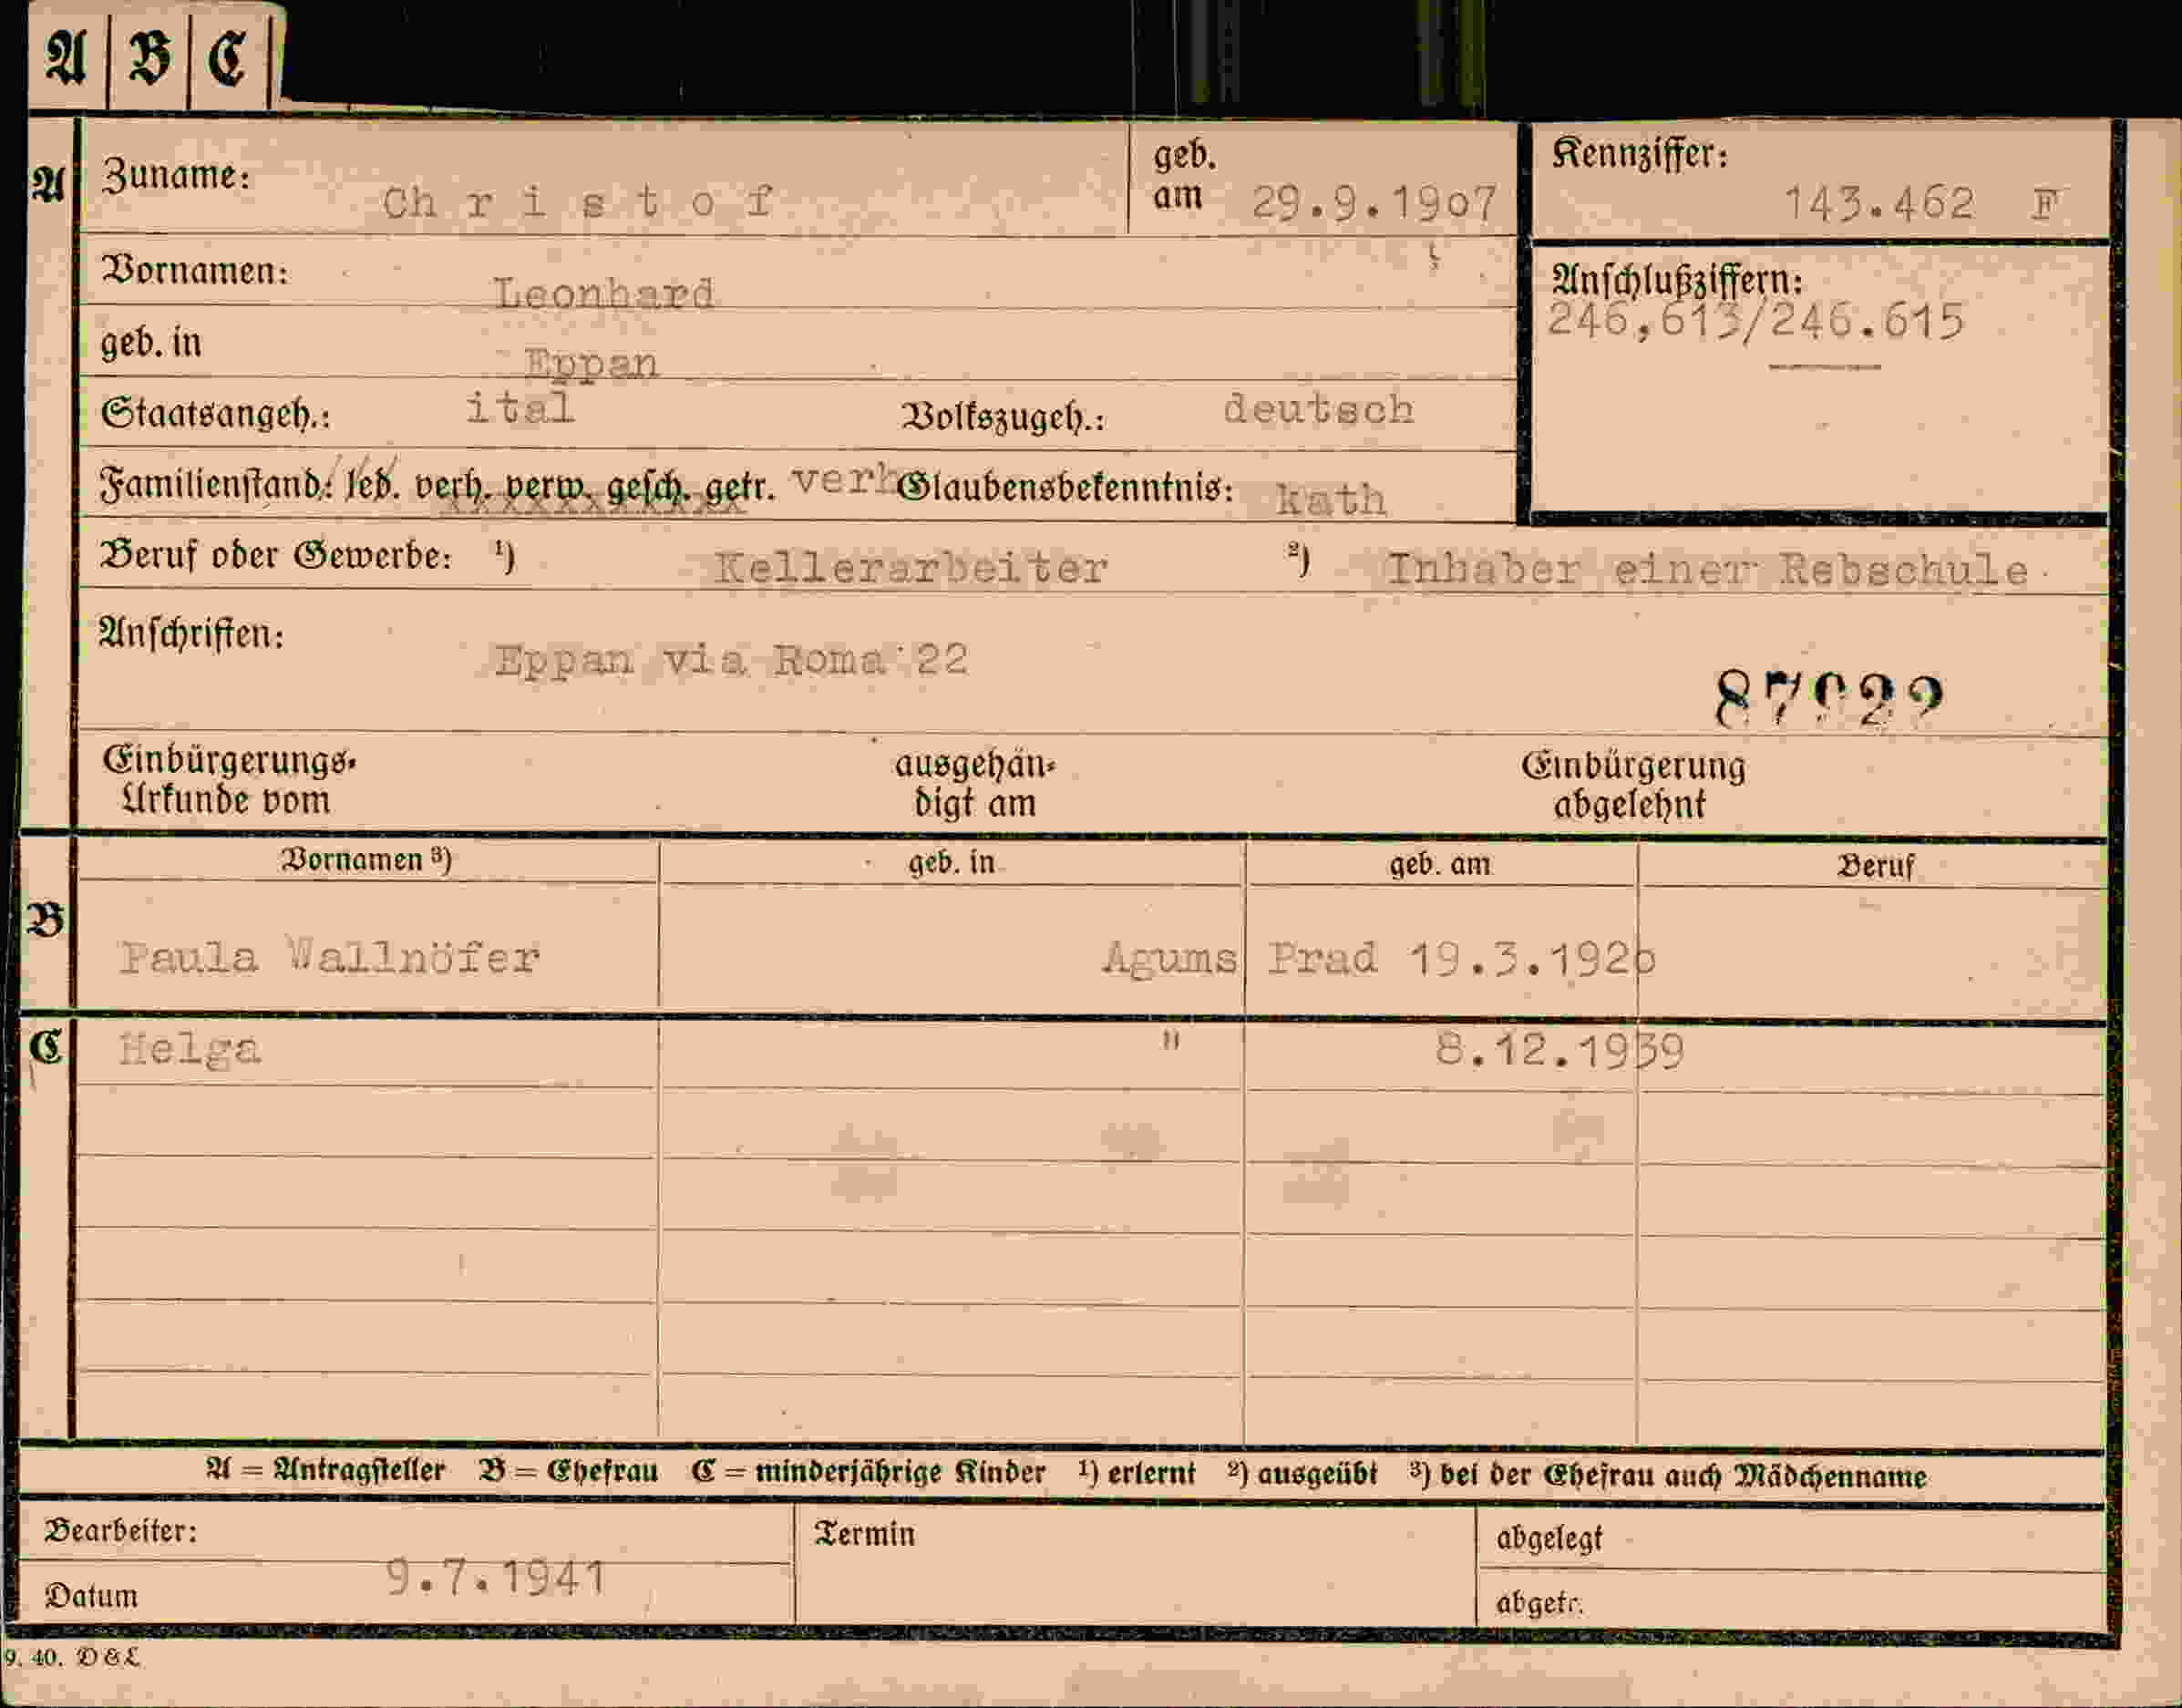 A B C
A Zuname: Ch r i s t o f geb. am 29.9.1907 Kennziffer: 143.462 F
Vornamen: Leonhard Anschlußziffern:
246,613/246.615
geb. in Eppan
Staatsangeh.: ital Volkszugeh.: deutsch
Familienstand: led. verh. verw. gesch. getr. verh Glaubensbekenntnis: kath
Beruf oder Gewerbe: ¹) Kellerarbeiter ²) Inhaber einer Rebschule
Anschriften: Eppan via Roma 22
Einbürgerungs-Urkunde vom ausgehändigt am Einbürgerung abgelehnt
Vornamen ³) geb. in geb. am Beruf
B Paula Wallnöfer Agums Prad
C Helga " 8.12.1939
A = Antragsteller B = Ehefrau C = minderjährige Kinder ¹) erlernt ²) ausgeübt ³) bei der Ehefrau auch Mädchenname
Bearbeiter: Termin abgelegt
Datum 9.7.1941 abgetr.
9. 40. D & L